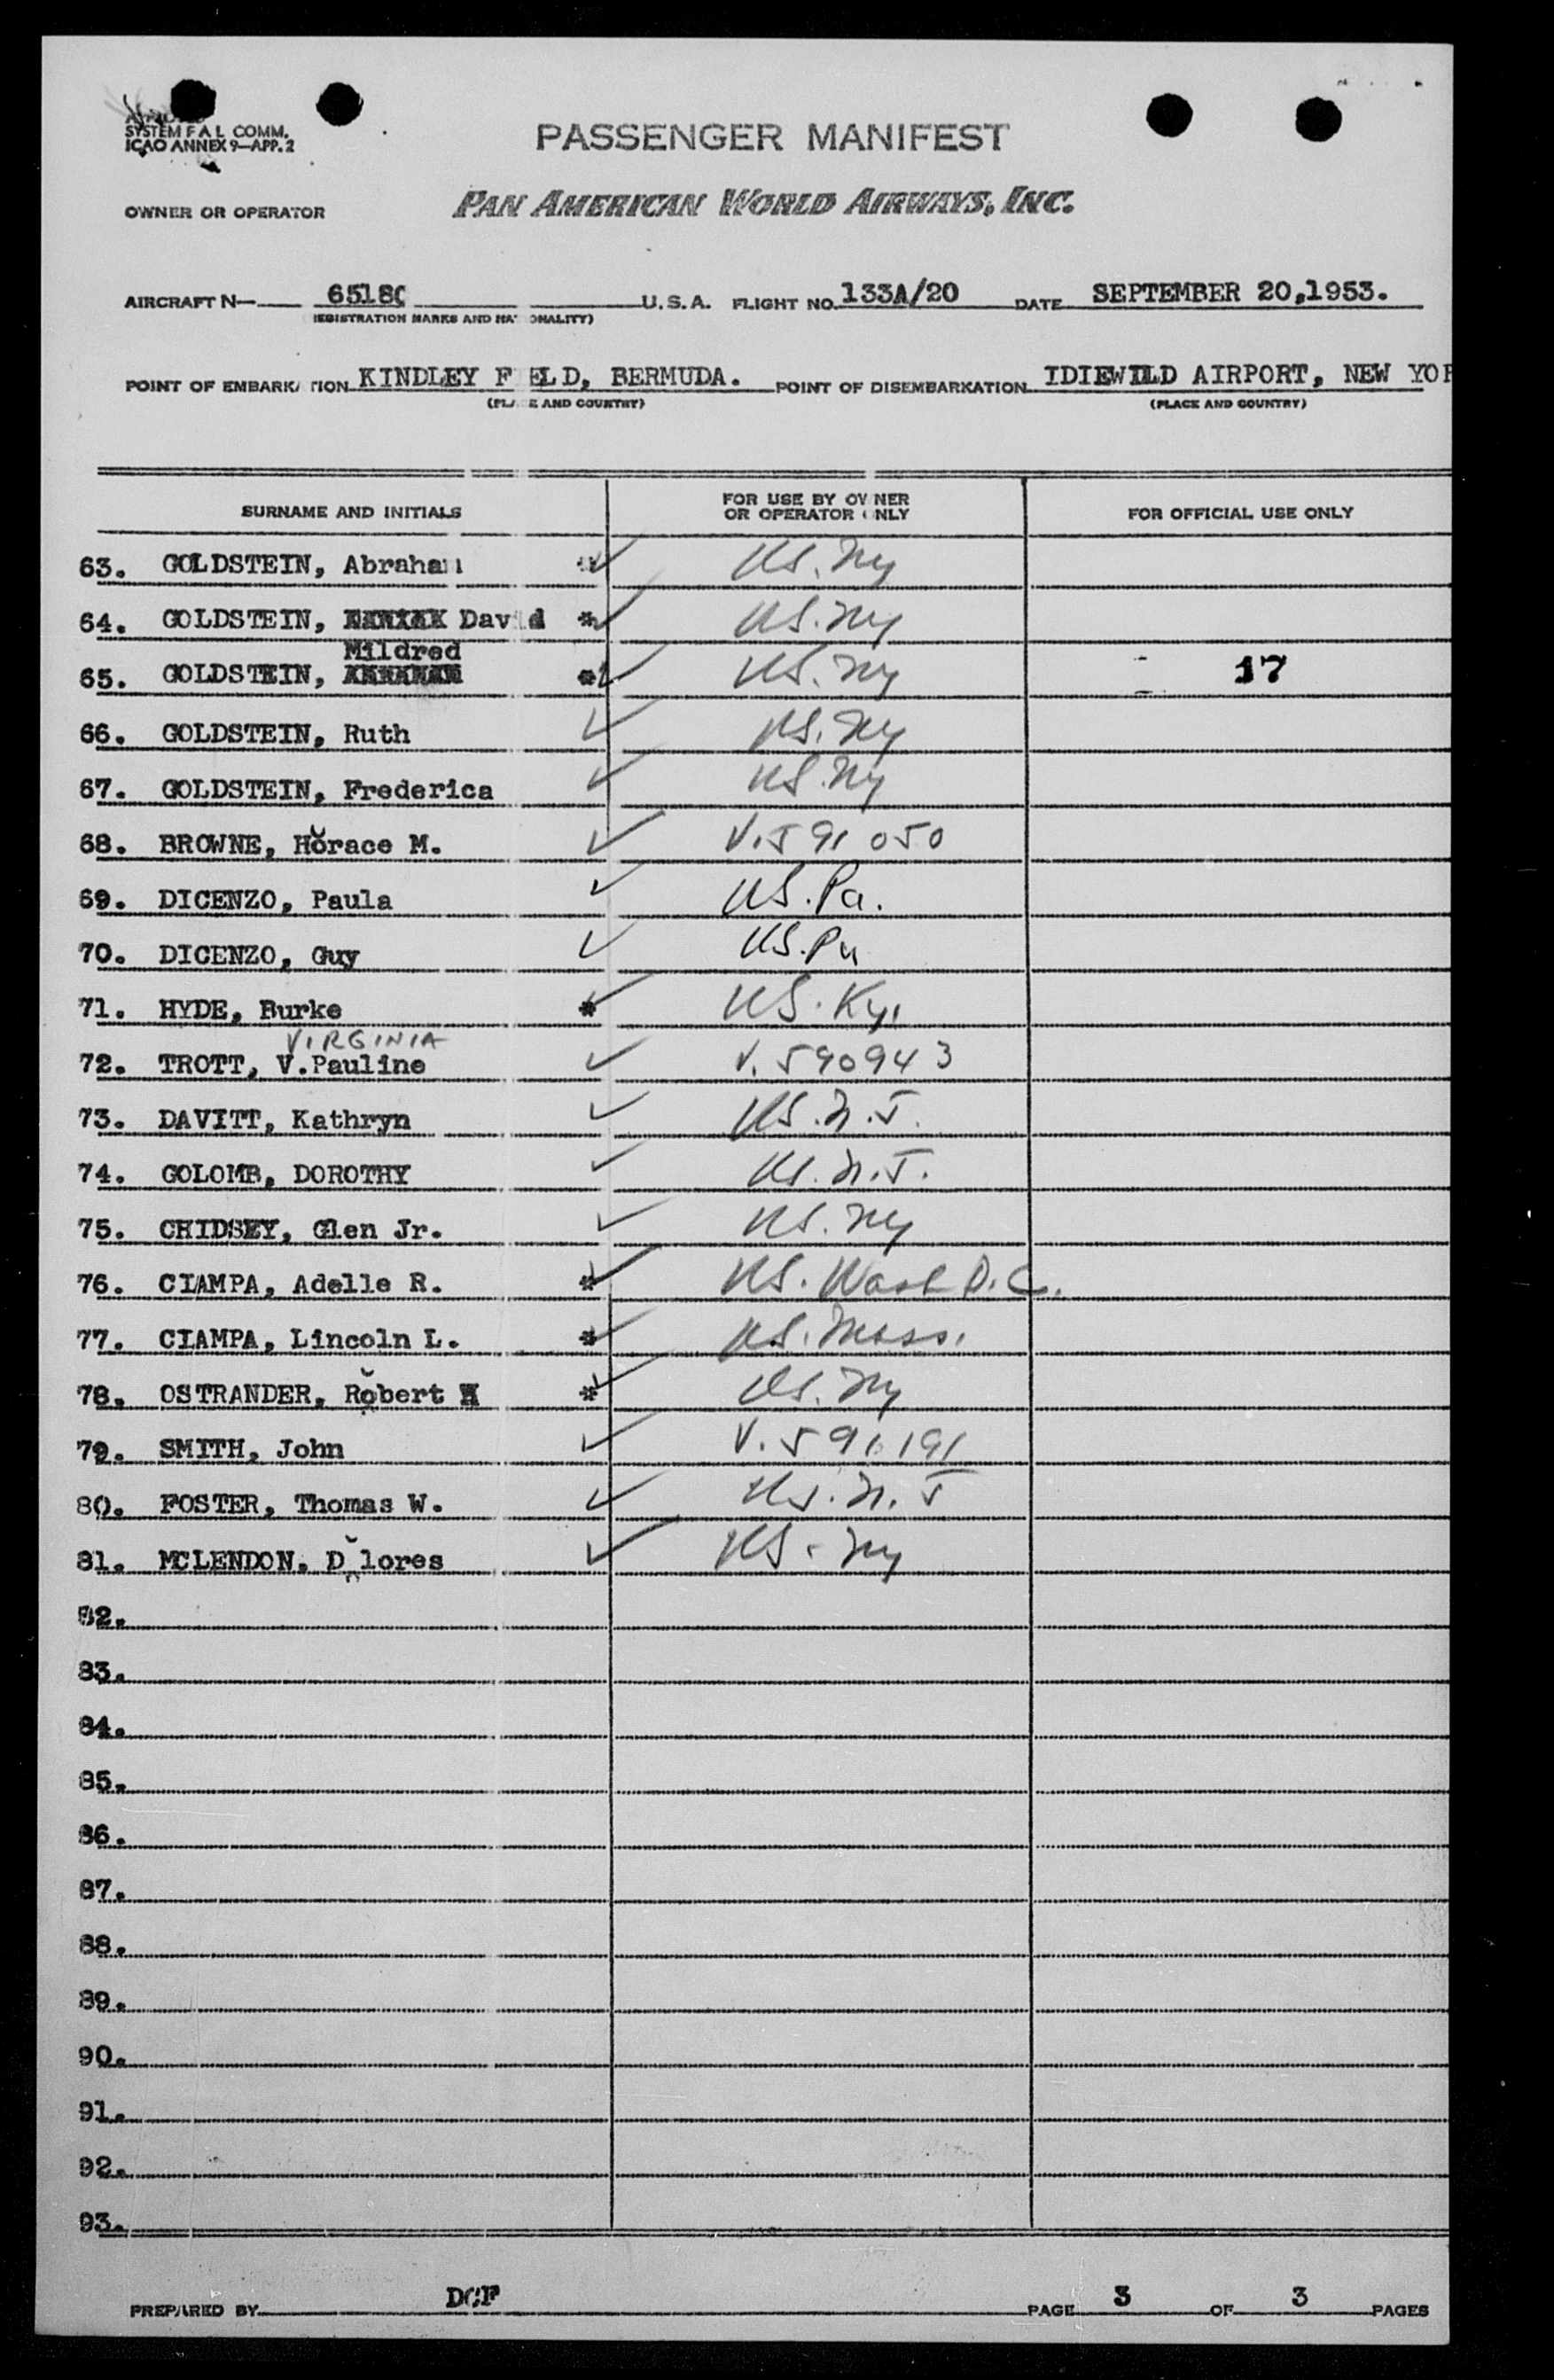 SYSTEM F A L COMM.
ICAO ANNEX 9—APP. 2
PASSENGER MANIFEST
OWNER OR OPERATOR PAN AMERICAN WORLD AIRWAYS, INC.
AIRCRAFT N— 6518C U.S.A. FLIGHT NO. 133A/20 DATE SEPTEMBER 20,1953.
(REGISTRATION MARKS AND NATIONALITY)
POINT OF EMBARKATION KINDLEY F ELD, BERMUDA. POINT OF DISEMBARKATION IDIEWILD AIRPORT, NEW YOR
(PLACE AND COUNTRY) (PLACE AND COUNTRY)
SURNAME AND INITIALS FOR USE BY OWNER OR OPERATOR ONLY FOR OFFICIAL USE ONLY
63. GOLDSTEIN, Abraham * ✓ US. Ny
64. GOLDSTEIN, David * ✓ US. Ny
Mildred
65. GOLDSTEIN, * ✓ US. Ny 17
66. GOLDSTEIN, Ruth ✓ US. Ny
67. GOLDSTEIN, Frederica ✓ US. Ny
68. BROWNE, Horace M. ✓ V. 591050
69. DICENZO, Paula ✓ US. Pa.
70. DICENZO, Guy ✓ US. Pa
71. HYDE, Burke * ✓ US. Ky.
VIRGINIA
72. TROTT, V.Pauline ✓ V. 590943
73. DAVITT, Kathryn ✓ US. N.J.
74. GOLOMB, DOROTHY ✓ US. N.J.
75. CHIDSEY, Glen Jr. ✓ US. Ny
76. CIAMPA, Adelle R. * ✓ US. Wash D.C.
77. CIAMPA, Lincoln L. * ✓ US. Mass.
78. OSTRANDER, Robert * ✓ US. Ny
79. SMITH, John ✓ V. 591191
80. FOSTER, Thomas W. ✓ US. N.J
81. MCLENDON, D lores ✓ US. Ny
82.
83.
84.
85.
86.
87.
88.
89.
90.
91.
92.
93.
PREPARED BY DCF PAGE 3 OF 3 PAGES